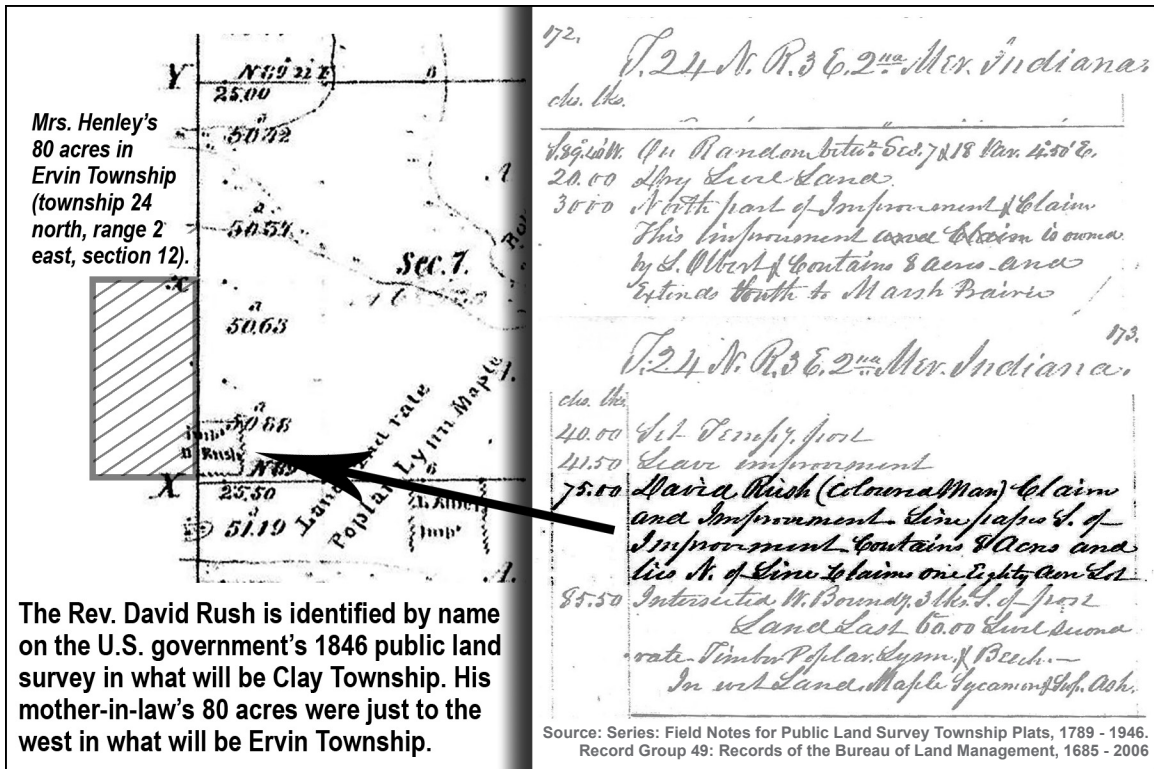 Mrs. Henley's
80 acres in
Ervin Township
(township 24
north, range 2
east, section 12).
Y
25.00
6
50.42
50.57
Sec. 7.
50.63
50.88
Imp.
D Rush
X
N 89
6
25.50
51.19
Land 2nd rate
Poplar Lynn Maple
Imp.
The Rev. David Rush is identified by name
on the U.S. government's 1846 public land
survey in what will be Clay Township. His
mother-in-law's 80 acres were just to the
west in what will be Ervin Township.
172.
T. 24 N. R. 3 E. 2nd Mer. Indiana.
chs. lks.
S.89.40W. On Random betwn. Sec. 7 & 18 Var. 4.50 E.
20.00 Dry Level Land
3000 North part of Improvement & Claim
This improvement and Claim is owned
by L. Albert & Contains 8 acres and
Extends South to Marsh Prairie
173.
T. 24 N. R. 3 E. 2nd Mer. Indiana.
chs. lks.
40.00 Set Tempy. post
41.50 Leave improvement
75.00 David Rush (Coloured Man) Claim
and Improvement. Line passes S. of
Improvement Contains 8 Acres and
lies N. of Line Claims one Eighty Acre Lot
85.50 Intersected W. Boundy. 3 lks. S. of post
Land Last 60.00 Level Second
rate Timber Poplar. Lynn. & Beech.
In wet Land. Maple Sycamore & Ash.
Source: Series: Field Notes for Public Land Survey Township Plats, 1789 - 1946.
Record Group 49: Records of the Bureau of Land Management, 1685 - 2006